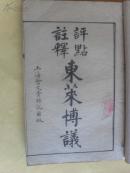 評點
註釋
東萊博議